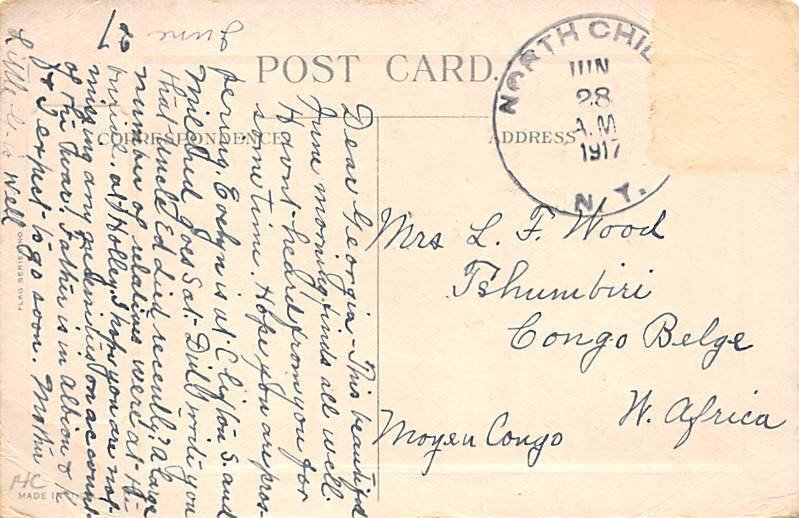 POST CARD.
CORRESPONDENCE
ADDRESS
NORTH CHIL
JUN
28
A.M.
1917
N.Y.
June
Dear Georgia,- This beautiful
June morning finds all well.
Havnt heard from you for
some time. Hope you are pros-
pering. Evelyn is at Clifton S. and
Mildred goes Sat. Did I write you
that Uncle Ed died recently? A large
number of relatives were at the
burial at Holley. I hope you are not
missing any on account
of the War. Father is in Albion &
I expect to go soon. Mother
Little G- is well
Mrs L. F. Wood
Tshumbiri
Congo Belge
W. Africa
Moyen Congo
FLAG SERIES NO.
HC
MADE IN